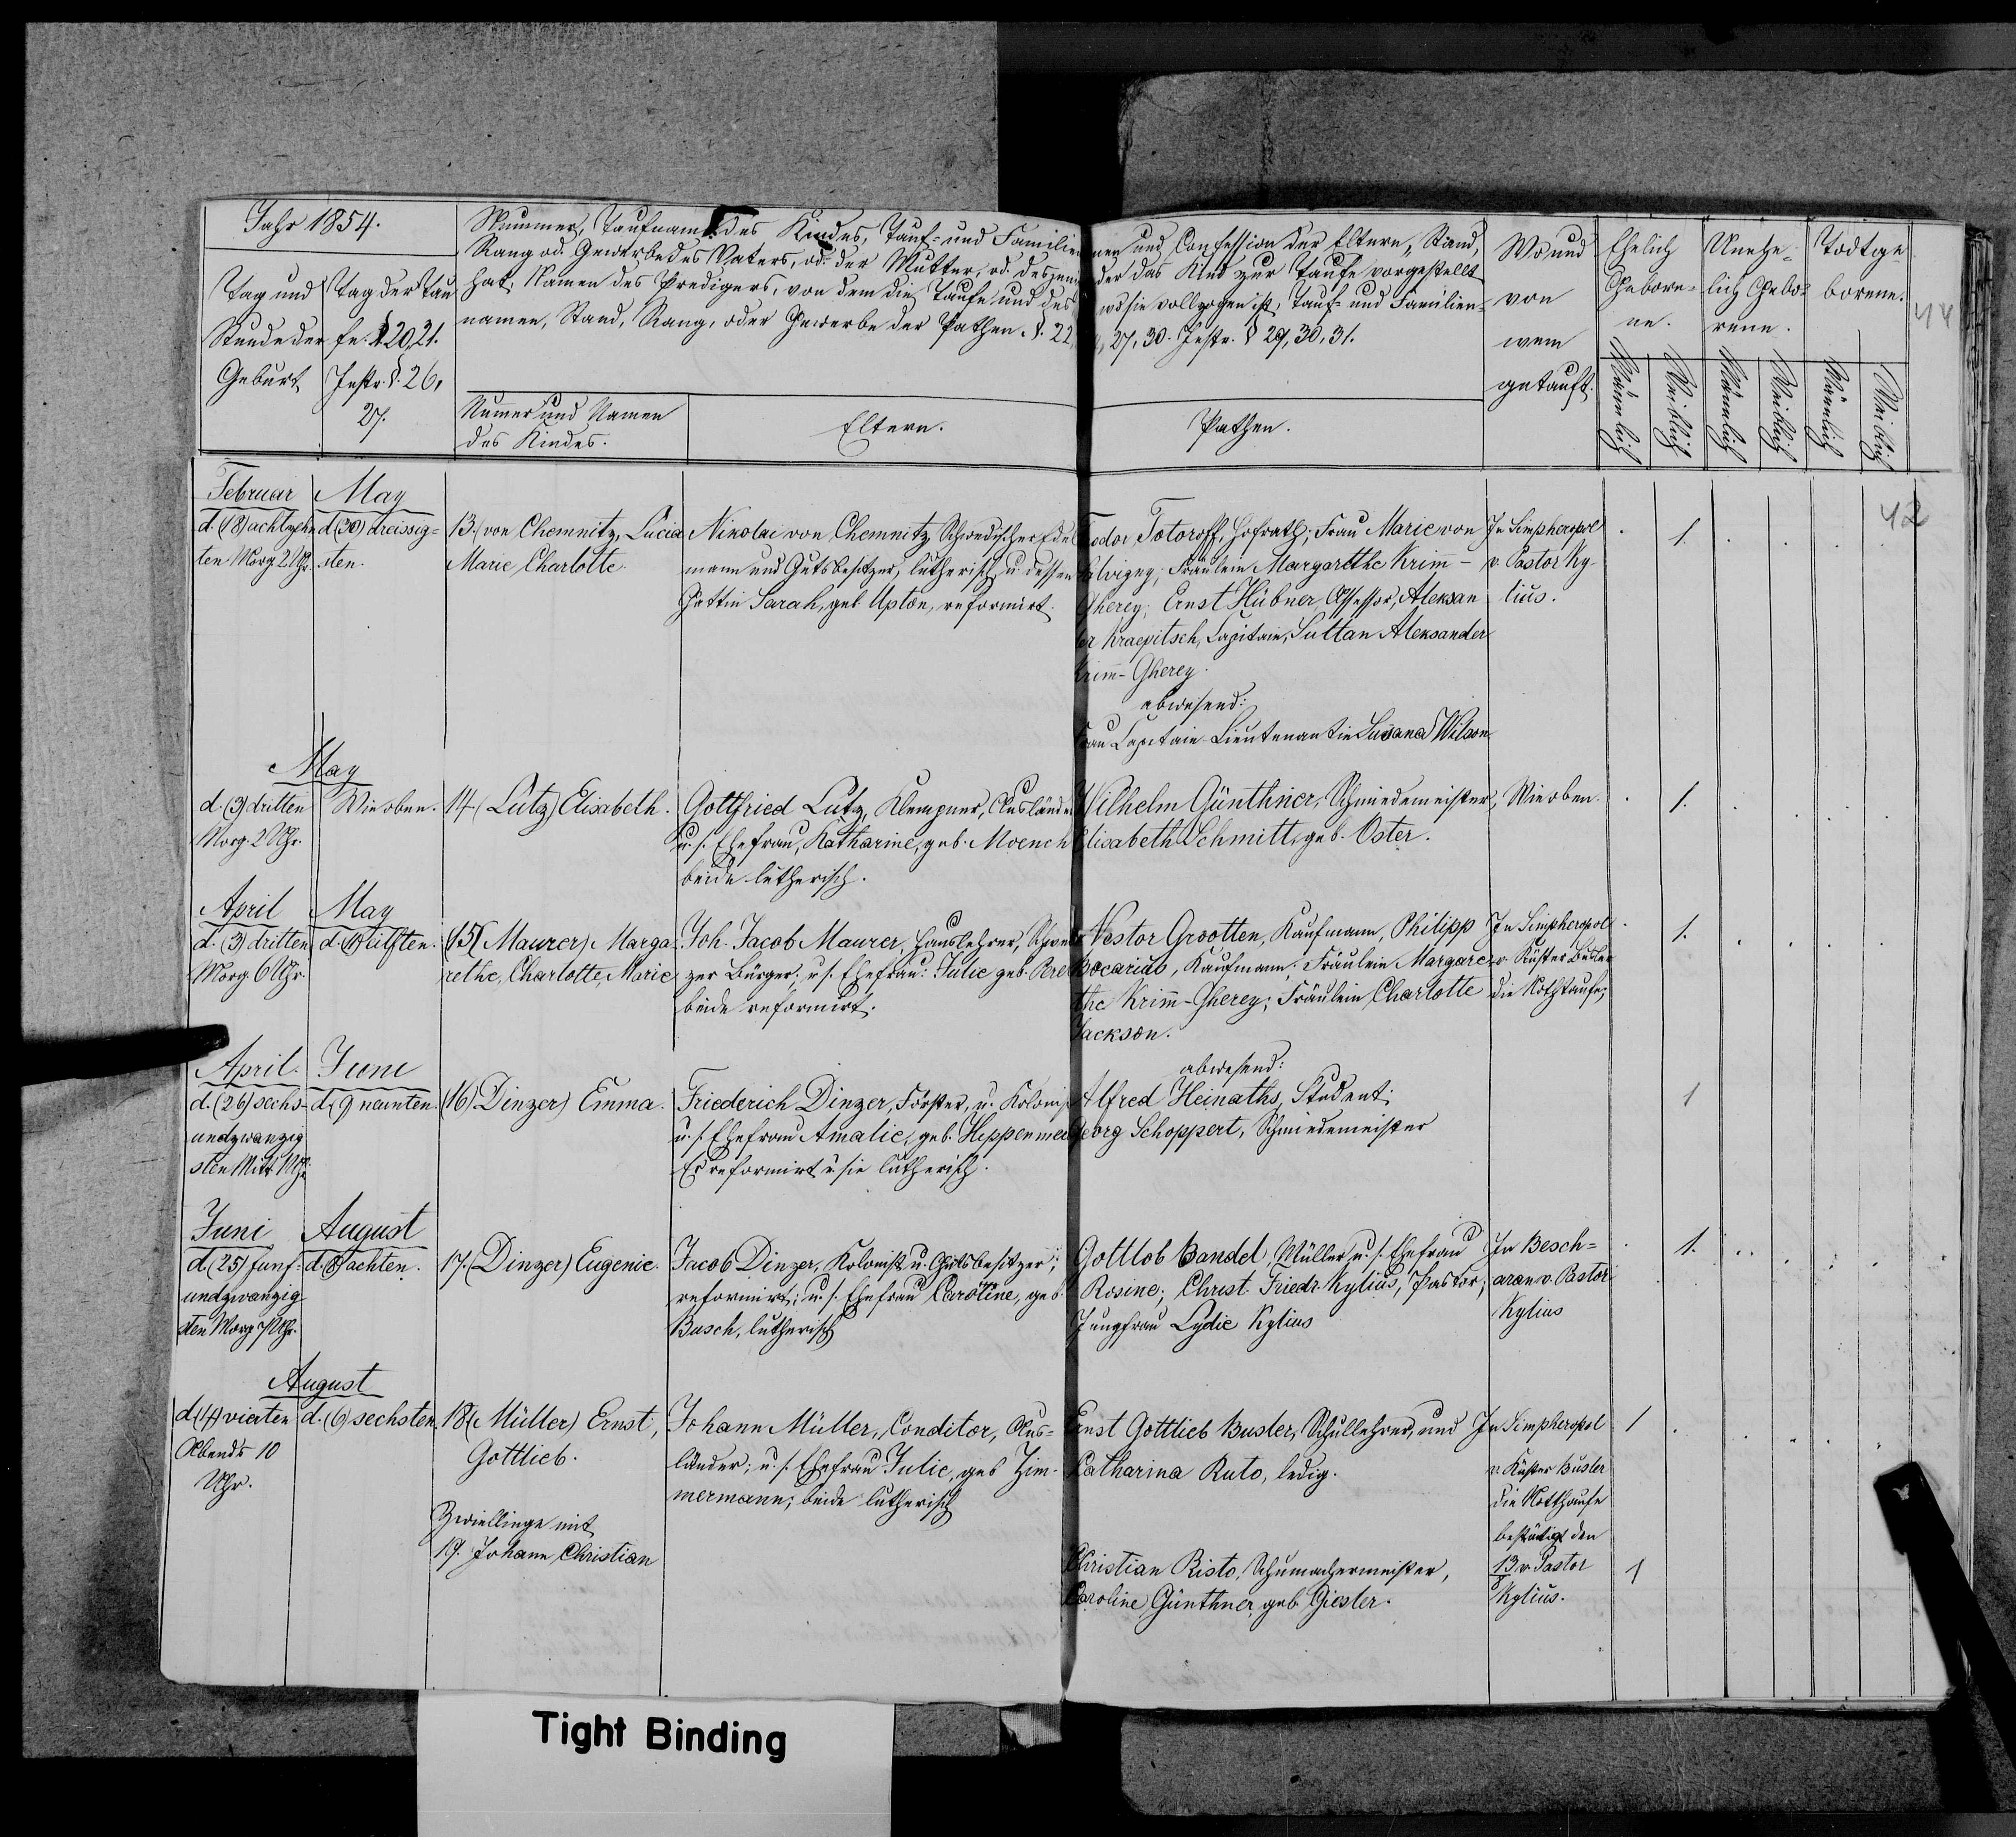 Jahr 1854.
Tag und
Stunde der
Geburt
Tag der Tau
fe. §. 20, 21.
Instr. §. 26,
27.
Nummer, Taufname des Kindes, Tauf- und Familien
Rang od. Gewerbe des Vaters, od. der Mutter, od. desjeni
hat, Namen des Predigers, von dem die Taufe, und des
namen, Stand, Rang, oder Gewerbe der Pathen. §. 22,
Numer und Namen
des Kindes.
Eltern.
men und Confession der Eltern, Stand,
der das Kind zur Taufe vorgestellt
wo sie vollzogen ist, Tauf- und Familien-
27, 30. Instr. § 29, 30, 31.
Pathen.
Wo und
von
wem
getauft.
Ehelich
Gebore-
ne.
Unehe-
lich Gebo-
rene.
Todtge
borene.
Männlich
Weiblich
Männlich
Weiblich
Männlich
Weiblich
44
42
Februar
d. (18) achtzehn
ten Morg 2 Uhr.
May
d (30) dreissig-
sten.
13. (von Chemnitz, Lucia
Marie Charlotte
Nikolai von Chemnitz Schwedischer Edel
mann und Gutsbesitzer, lutherisch u. dessen
Gattin Sarah, geb. Upton, reformirt.
Fodor Totoroff, Hofrath; Frau Marie von
Fräulein Margarethe Krim-
Gherey; Ernst Hübner, Assessor, Aleksan
er Kraepitsch, Capitain, Sultan Aleksander
Krim-Gherey.
abwesend:
Frau Capitain Lieutenantin Susana Wilson
In Simpheropol
v. Pastor Ky-
lius.
1.
May
d. (3) dritten
Morg. 2 Uhr.
Wie oben.
14 (Lutz) Elisabeth.
Gottfried Lutz, Klempner, Ausländer
u. s. Ehefrau, Katharine, geb. Moench
beide lutherisch.
Wilhelm Günthner, Schmiedemeister,
Elisabeth Schmitt, geb. Oster.
Wie oben.
1.
April
d. (3) dritten
Morg. 6 Uhr.
May
d. (11) eilften.
(15) (Maurer) Marga
rethe, Charlotte, Marie
Joh. Jacob Maurer, Hauslehrer, Schwei
zer Bürger; u. s. Ehefrau: Julie geb. Peret
beide reformirt.
Nestor Grootten, Kaufmann, Philipp
Bocarius, Kaufmann; Fräulein Margare
the Krim-Gherey; Fräulein Charlotte
Jackson.
In Simpheropol
v. Küster Busler
die Nothtaufe;
1.
April.
d. (26) sechs-
undzwanzig
sten Mitt. 1 Uhr.
Juni
d. (9) neunten.
(16) (Dinzer) Emma.
Friederich Dinzer, Förster, u. Kolonist
u. s. Ehefrau Amalie, geb. Heppenmei
Er reformirt u. sie lutherisch.
abwesend:
Alfred Heinaths, Student;
Georg Schoppert, Schmiedemeister
1
Juni
d. (25) funf-
undzwanzig
sten Morg. 7 Uhr.
August
d. (8) achten.
17. (Dinzer) Eugenie.
Jacob Dinzer, Kolonist u. Gutsbesitzer;
reformirt; u. s. Ehefrau Caroline, geb.
Busch, lutherisch
Gottlob Bandel, Müller u. s. Ehefrau
Rosine; Christ. Friedr. Kylius, Pastor;
Jungfrau Lydie Kylius
In Besch-
aran v. Pastor
Kylius
1.
August
d (4) vierten
Abends 10
Uhr.
d. (6) sechsten.
18 (Müller) Ernst,
Gottlieb.
Zwillinge mit
19. Johann Christian
Johann Müller, Conditor, Aus-
länder; u. s. Ehefrau Julie, geb Zim-
mermann; beide lutherisch
Ernst Gottlieb Busler, Schullehrer, und
Katharina Ruto, ledig.
Christian Risto, Schumachermeister,
Caroline Günthner, geb. Giesler.
In Simpheropol
v. Küster Busler
die Nothtaufe
bestätigt den
13 v. Pastor
Kylius.
1
1
Tight Binding